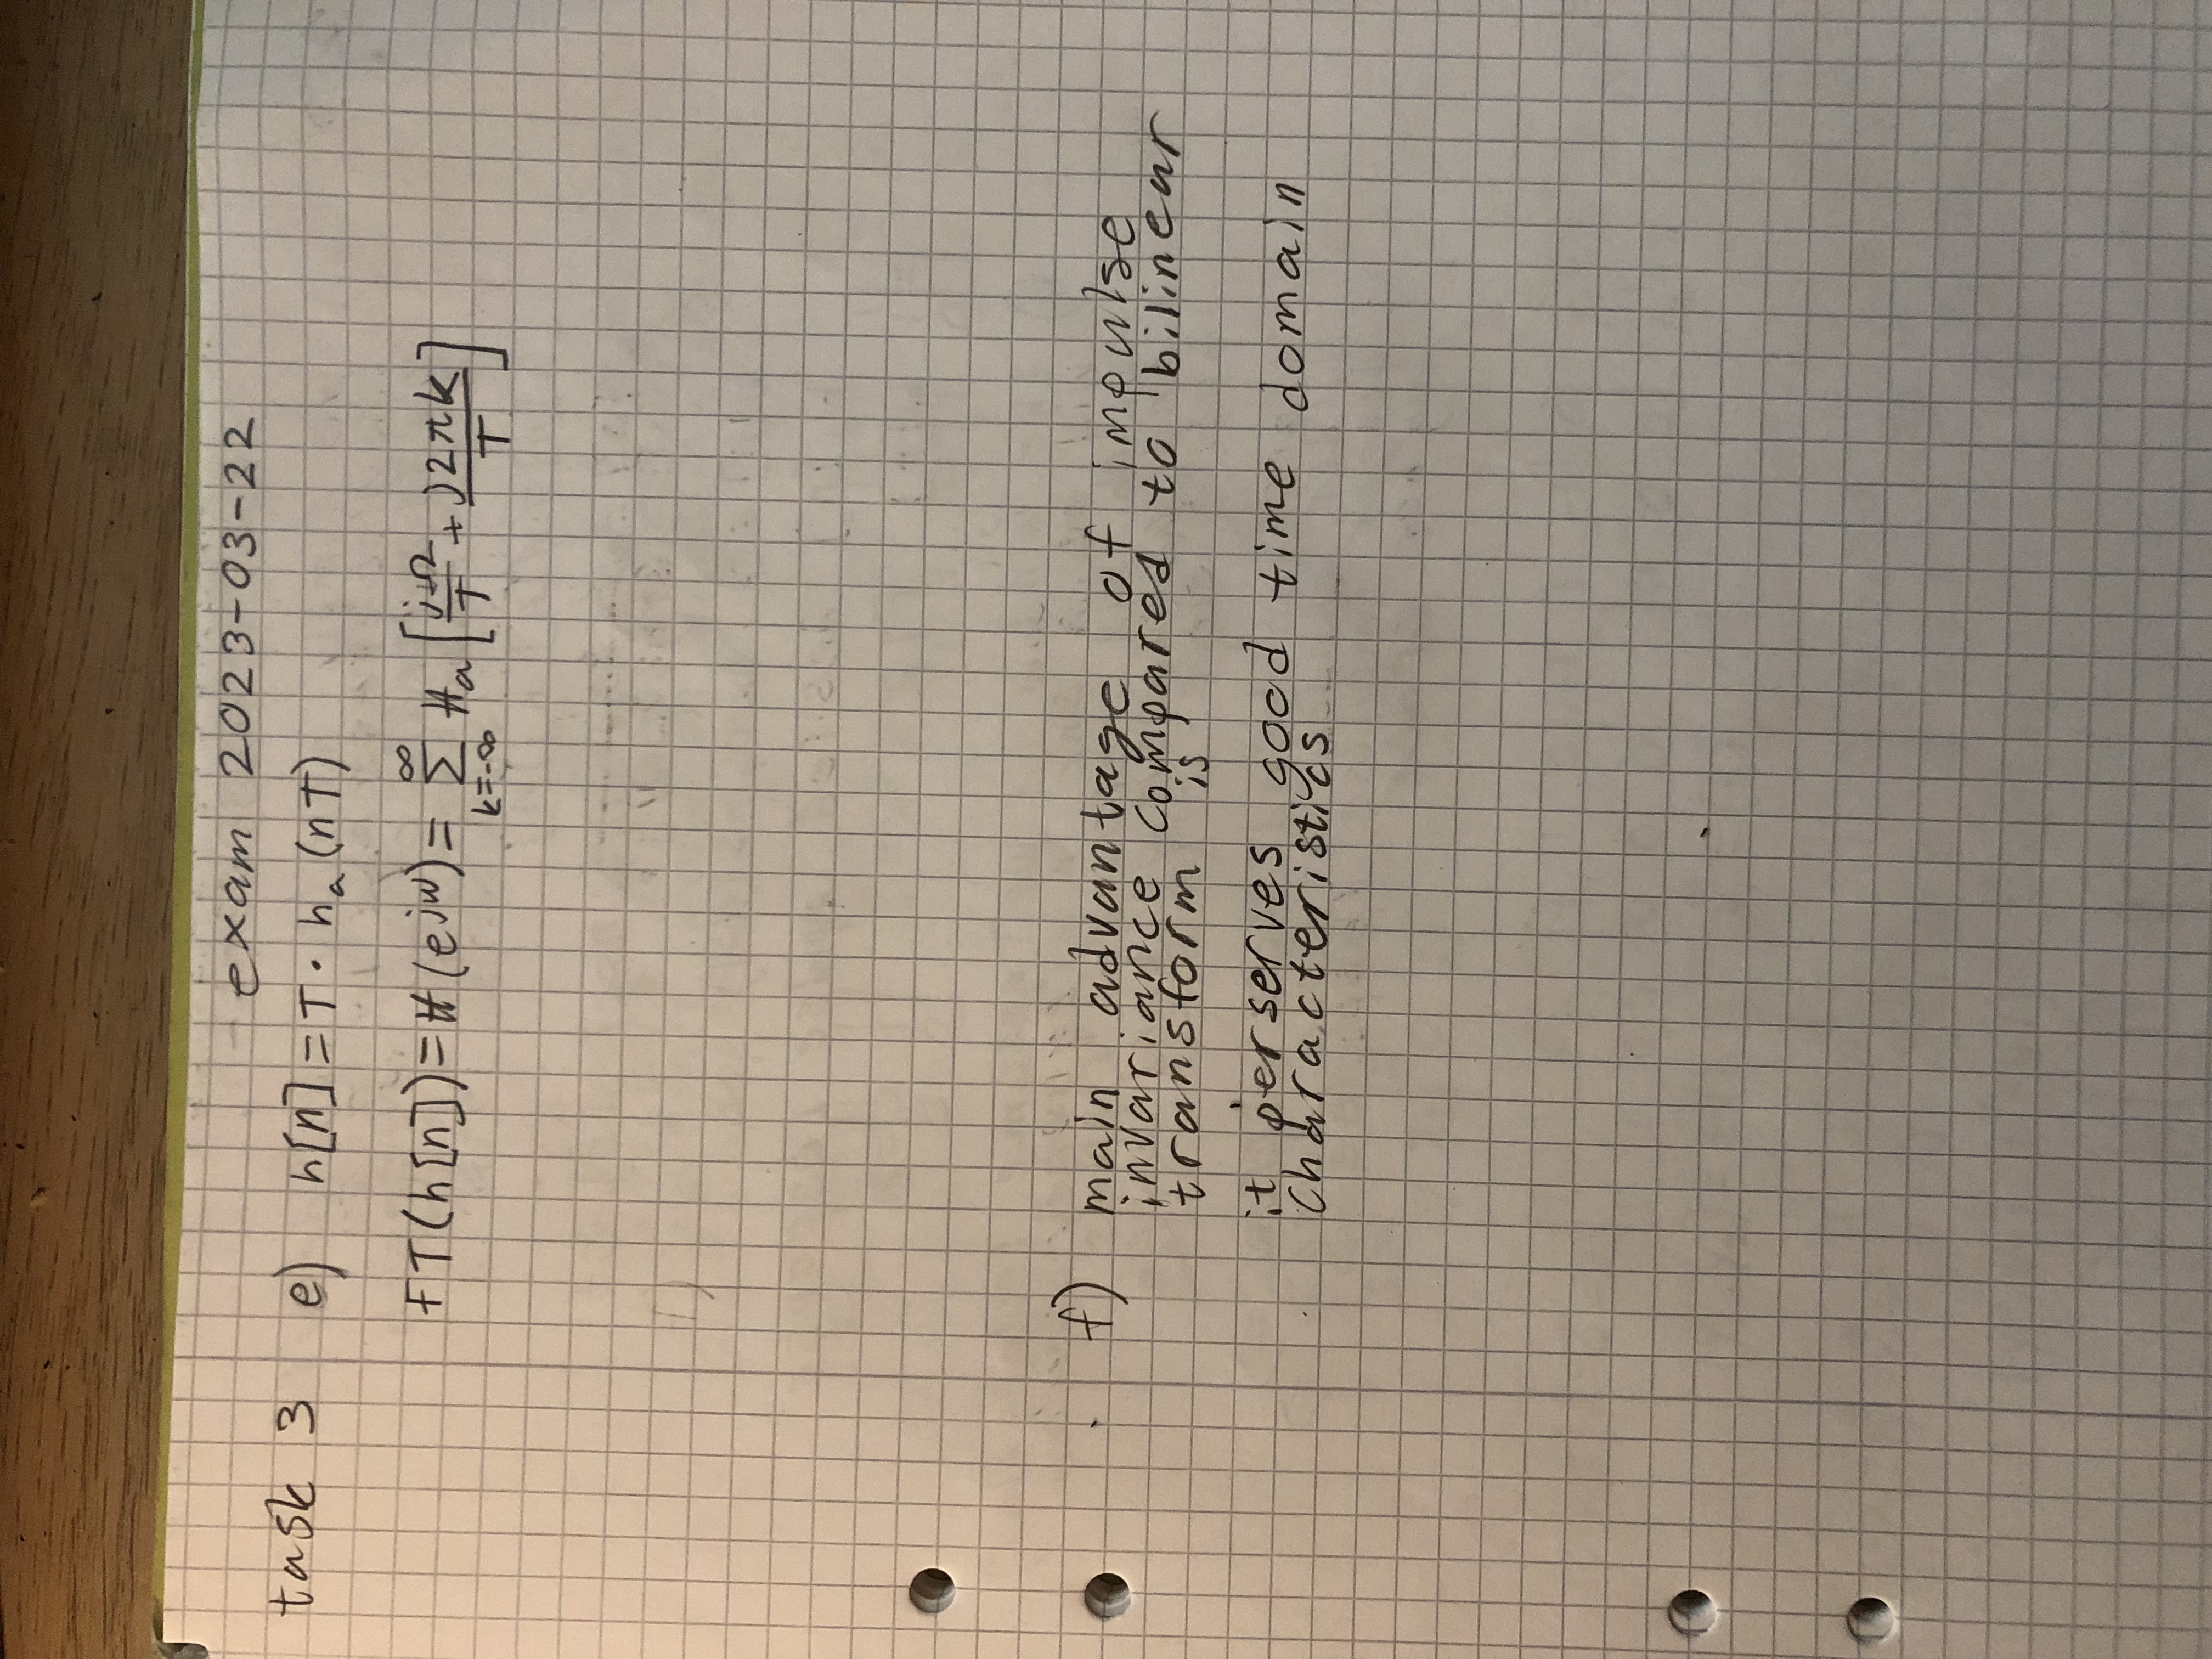 exam 2023-03-22
task 3 e) h[n] = T · hₐ(nT)
FT(h[n]) = H(e^jω) = ∑_{k=-∞}^{∞} Hₐ[jΩ/T + j2πk/T]
f) main advantage of impulse
invariance compared to bilinear
transform is
it perserves good time domain
characteristics